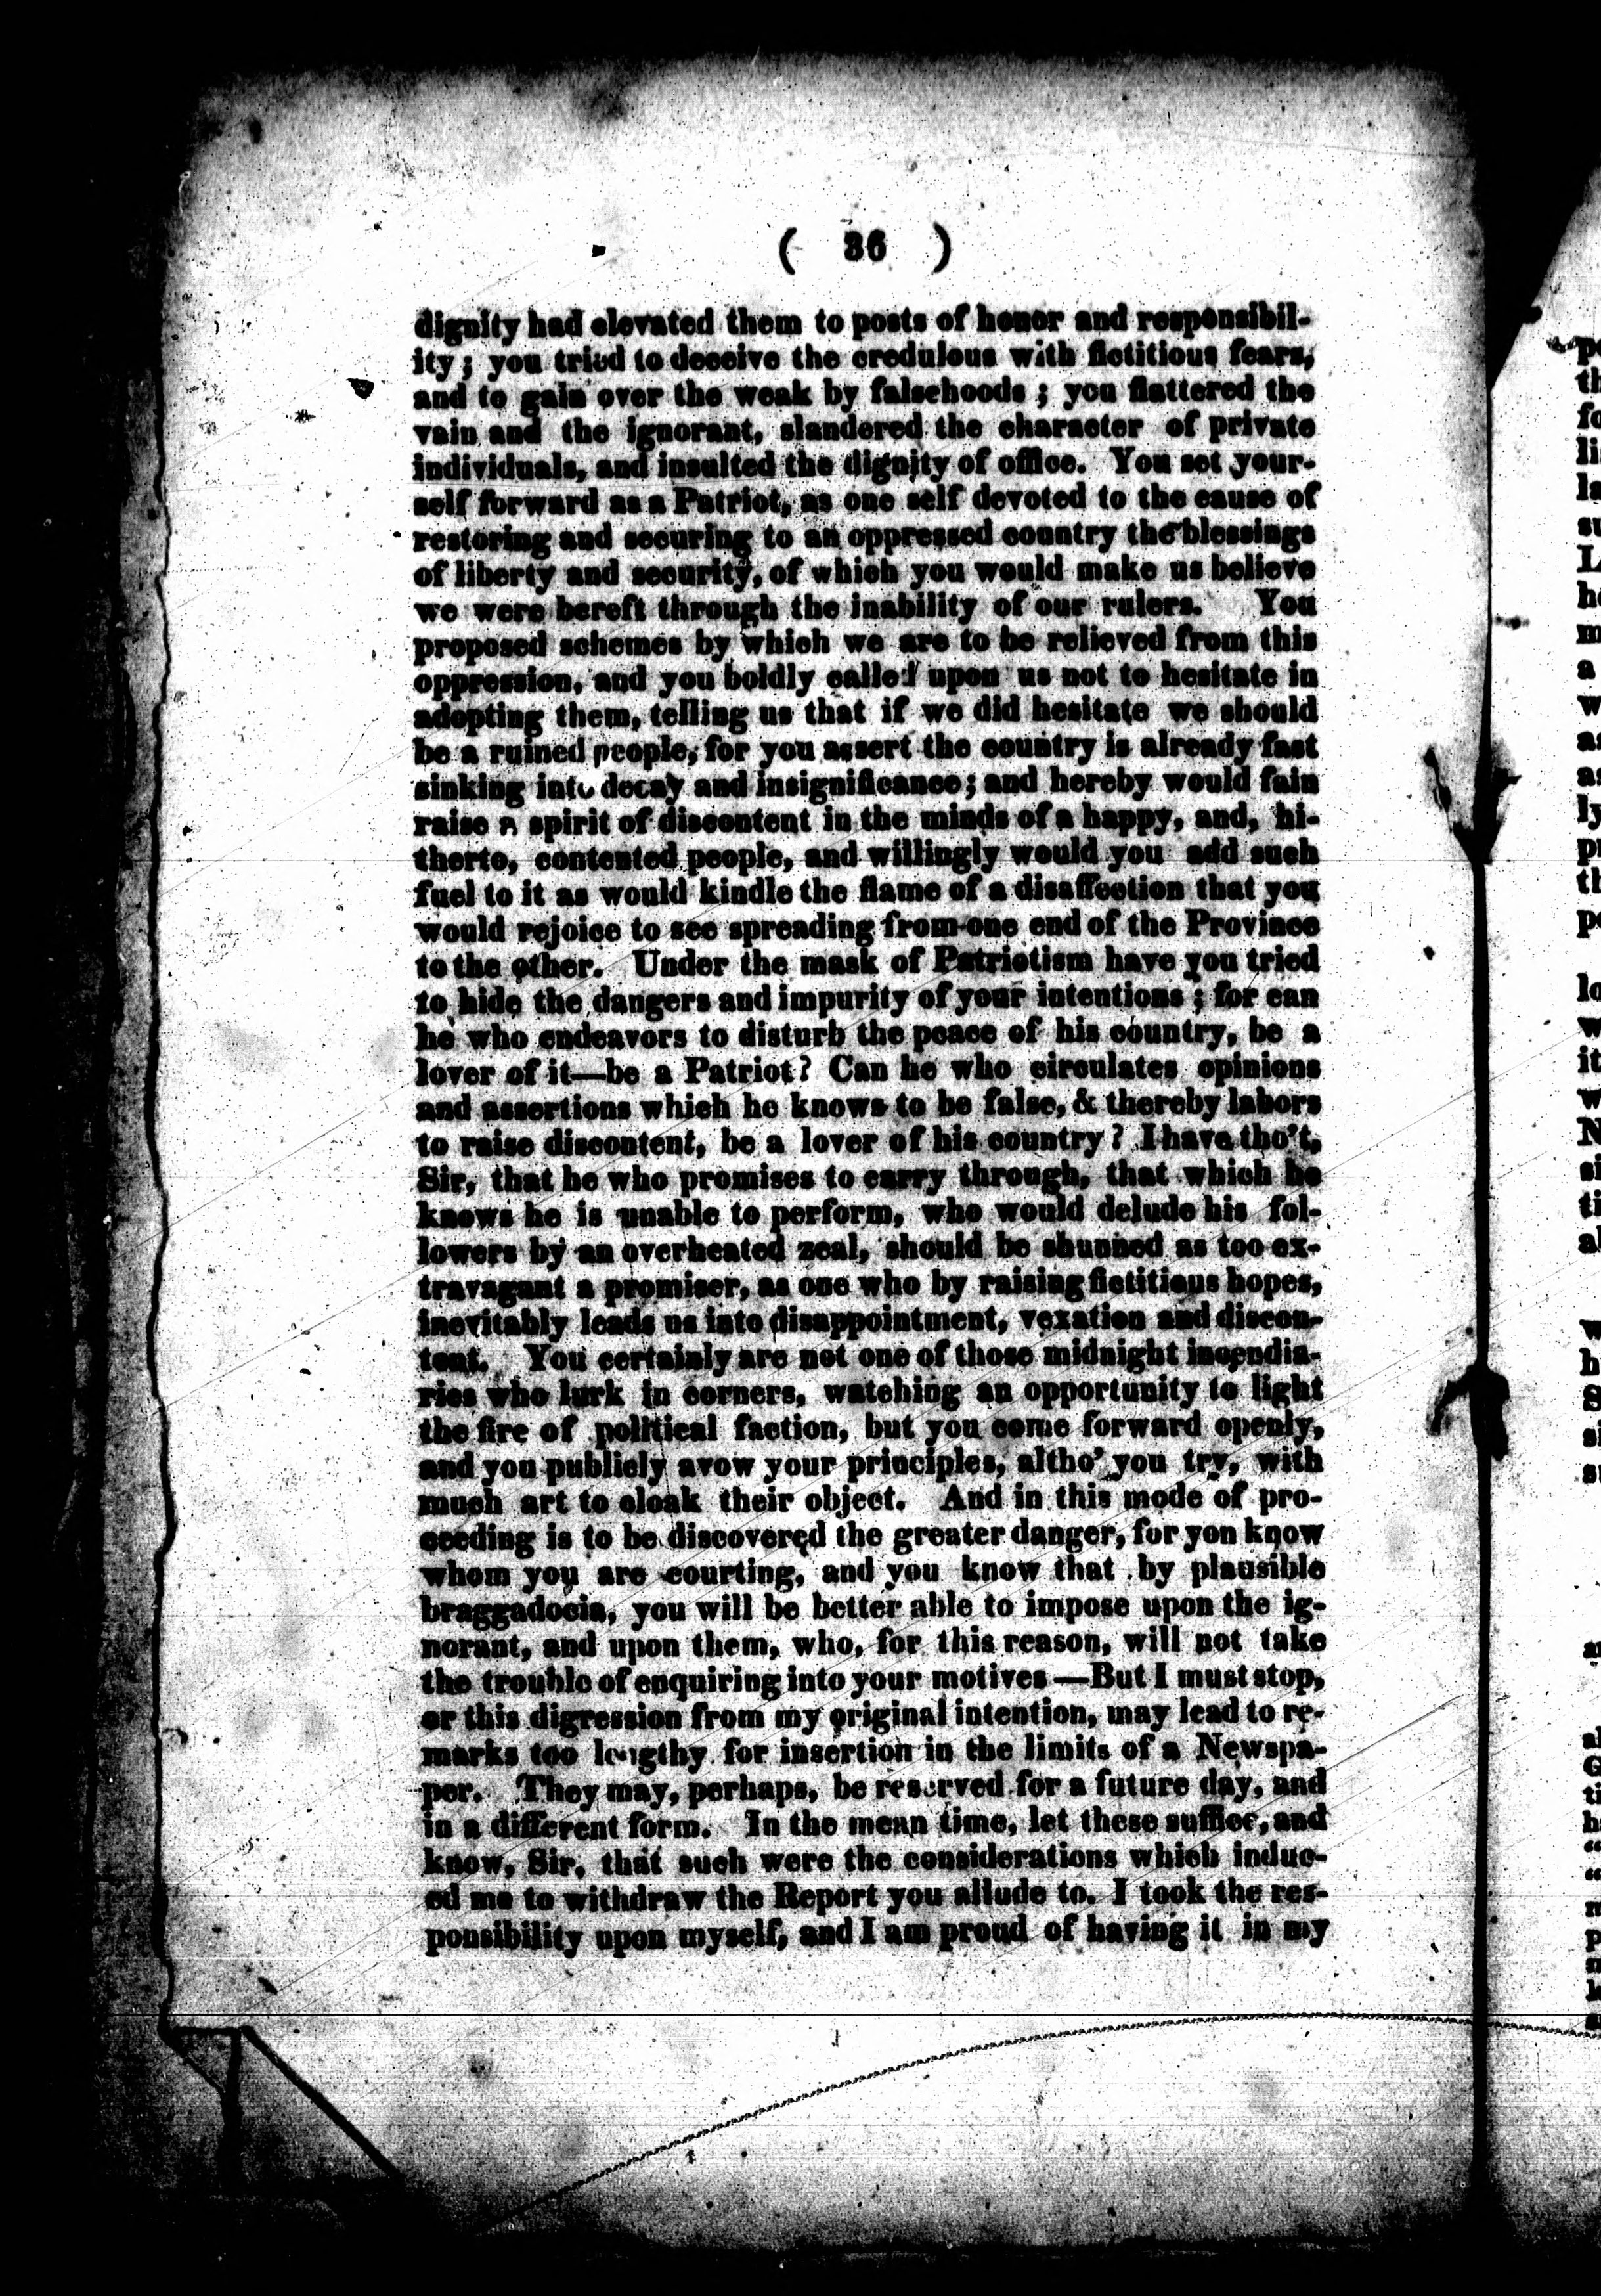 ( 36 )
dignity had elevated them to posts of honor and responsibil-
ity; you tried to deceive the credulous with fictitious fears,
and to gain over the weak by falsehoods; you flattered the
vain and the ignorant, slandered the character of private
individuals, and insulted the dignity of office. You set your-
self forward as a Patriot, as one self devoted to the cause of
restoring and securing to an oppressed country the blessings
of liberty and security, of which you would make us believe
we were bereft through the inability of our rulers. You
proposed schemes by which we are to be relieved from this
oppression, and you boldly called upon us not to hesitate in
adopting them, telling us that if we did hesitate we should
be a ruined people, for you assert the country is already fast
sinking into decay and insignificance; and hereby would fain
raise a spirit of discontent in the minds of a happy, and, hi-
therto, contented people, and willingly would you add such
fuel to it as would kindle the flame of a disaffection that you
would rejoice to see spreading from one end of the Province
to the other. Under the mask of Patriotism have you tried
to hide the dangers and impurity of your intentions; for can
he who endeavors to disturb the peace of his country, be a
lover of it—be a Patriot? Can he who circulates opinions
and assertions which he knows to be false, & thereby labors
to raise discontent, be a lover of his country? I have tho't,
Sir, that he who promises to carry through, that which he
knows he is unable to perform, who would delude his fol-
lowers by an overheated zeal, should be shunned as too ex-
travagant a promiser, as one who by raising fictitious hopes,
inevitably leads us into disappointment, vexation and discon-
tent. You certainly are not one of those midnight incendia-
ries who lurk in corners, watching an opportunity to light
the fire of political faction, but you come forward openly,
and you publicly avow your principles, altho' you try, with
much art to cloak their object. And in this mode of pro-
ceeding is to be discovered the greater danger, for yon know
whom you are courting, and you know that by plausible
braggadocia, you will be better able to impose upon the ig-
norant, and upon them, who, for this reason, will not take
the trouble of enquiring into your motives—But I must stop,
or this digression from my original intention, may lead to re-
marks too lengthy for insertion in the limits of a Newspa-
per. They may, perhaps, be reserved for a future day, and
in a different form. In the mean time, let these suffice, and
know, Sir, that such were the considerations which induc-
ed me to withdraw the Report you allude to. I took the res-
ponsibility upon myself, and I am proud of having it in my